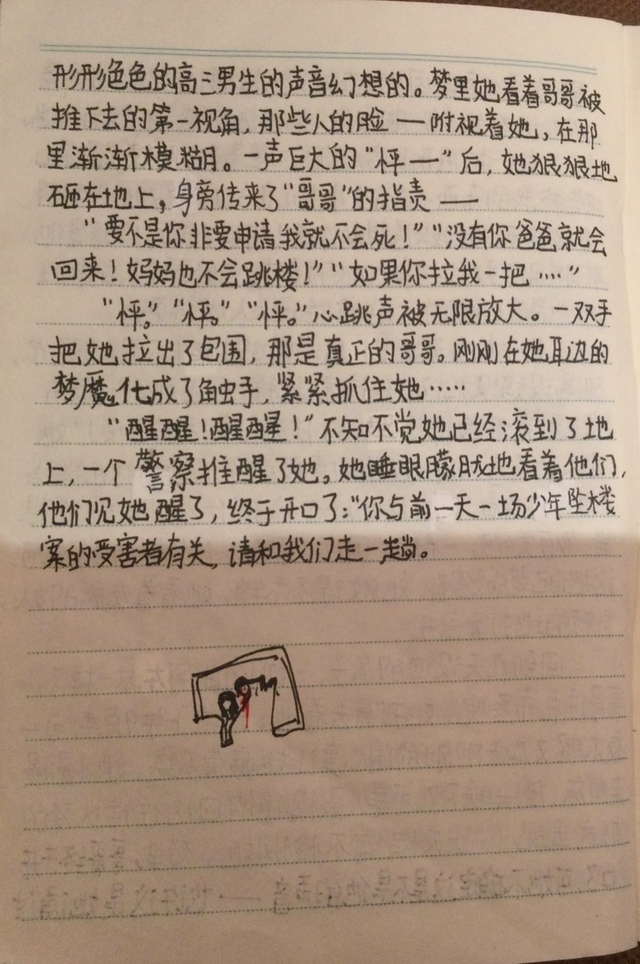 形形色色的高三男生的声音幻想的。梦里她看着哥哥被
推下去的第一视角，那些人的脸一一咐视着她，在那
里渐渐模糊。一声巨大的“怦—”后，她狠狠地
砸在地上，身旁传来了“哥哥”的指责——
“要不是你非要申请我就不会死！”“没有你爸爸就会
回来！妈妈也不会跳楼！”“如果你拉我一把……”
“怦。”“怦。”“怦。”心跳声被无限放大。一双手
把她拉出了包围，那是真正的哥哥。刚刚在她耳边的
梦魔化成了触手，紧紧抓住她……
“醒醒！醒醒！”不知不觉她已经滚到了地
上，一个警察推醒了她。她睡眼朦胧地看着他们，
他们见她醒了，终于开口了：“你与前一天一场少年坠楼
案的受害者有关，请和我们走一趟。